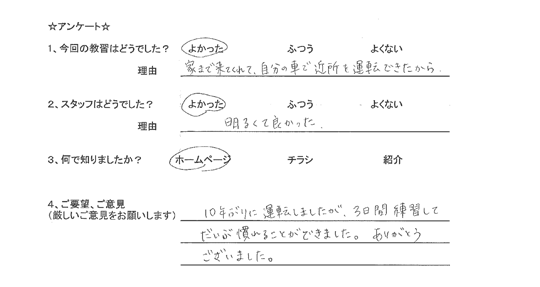 ☆アンケート☆
1、今回の教習はどうでした？ よかった ふつう よくない
理由 家まで来てくれて、自分の車で近所を運転できたから
2、スタッフはどうでした？ よかった ふつう よくない
理由 明るくて良かった.
3、何で知りましたか？ ホームページ チラシ 紹介
4、ご要望、ご意見
(厳しいご意見をお願いします)
10年ぶりに運転しましたが、3日間練習して
だいぶ慣れることができました。ありがとう
ございました。